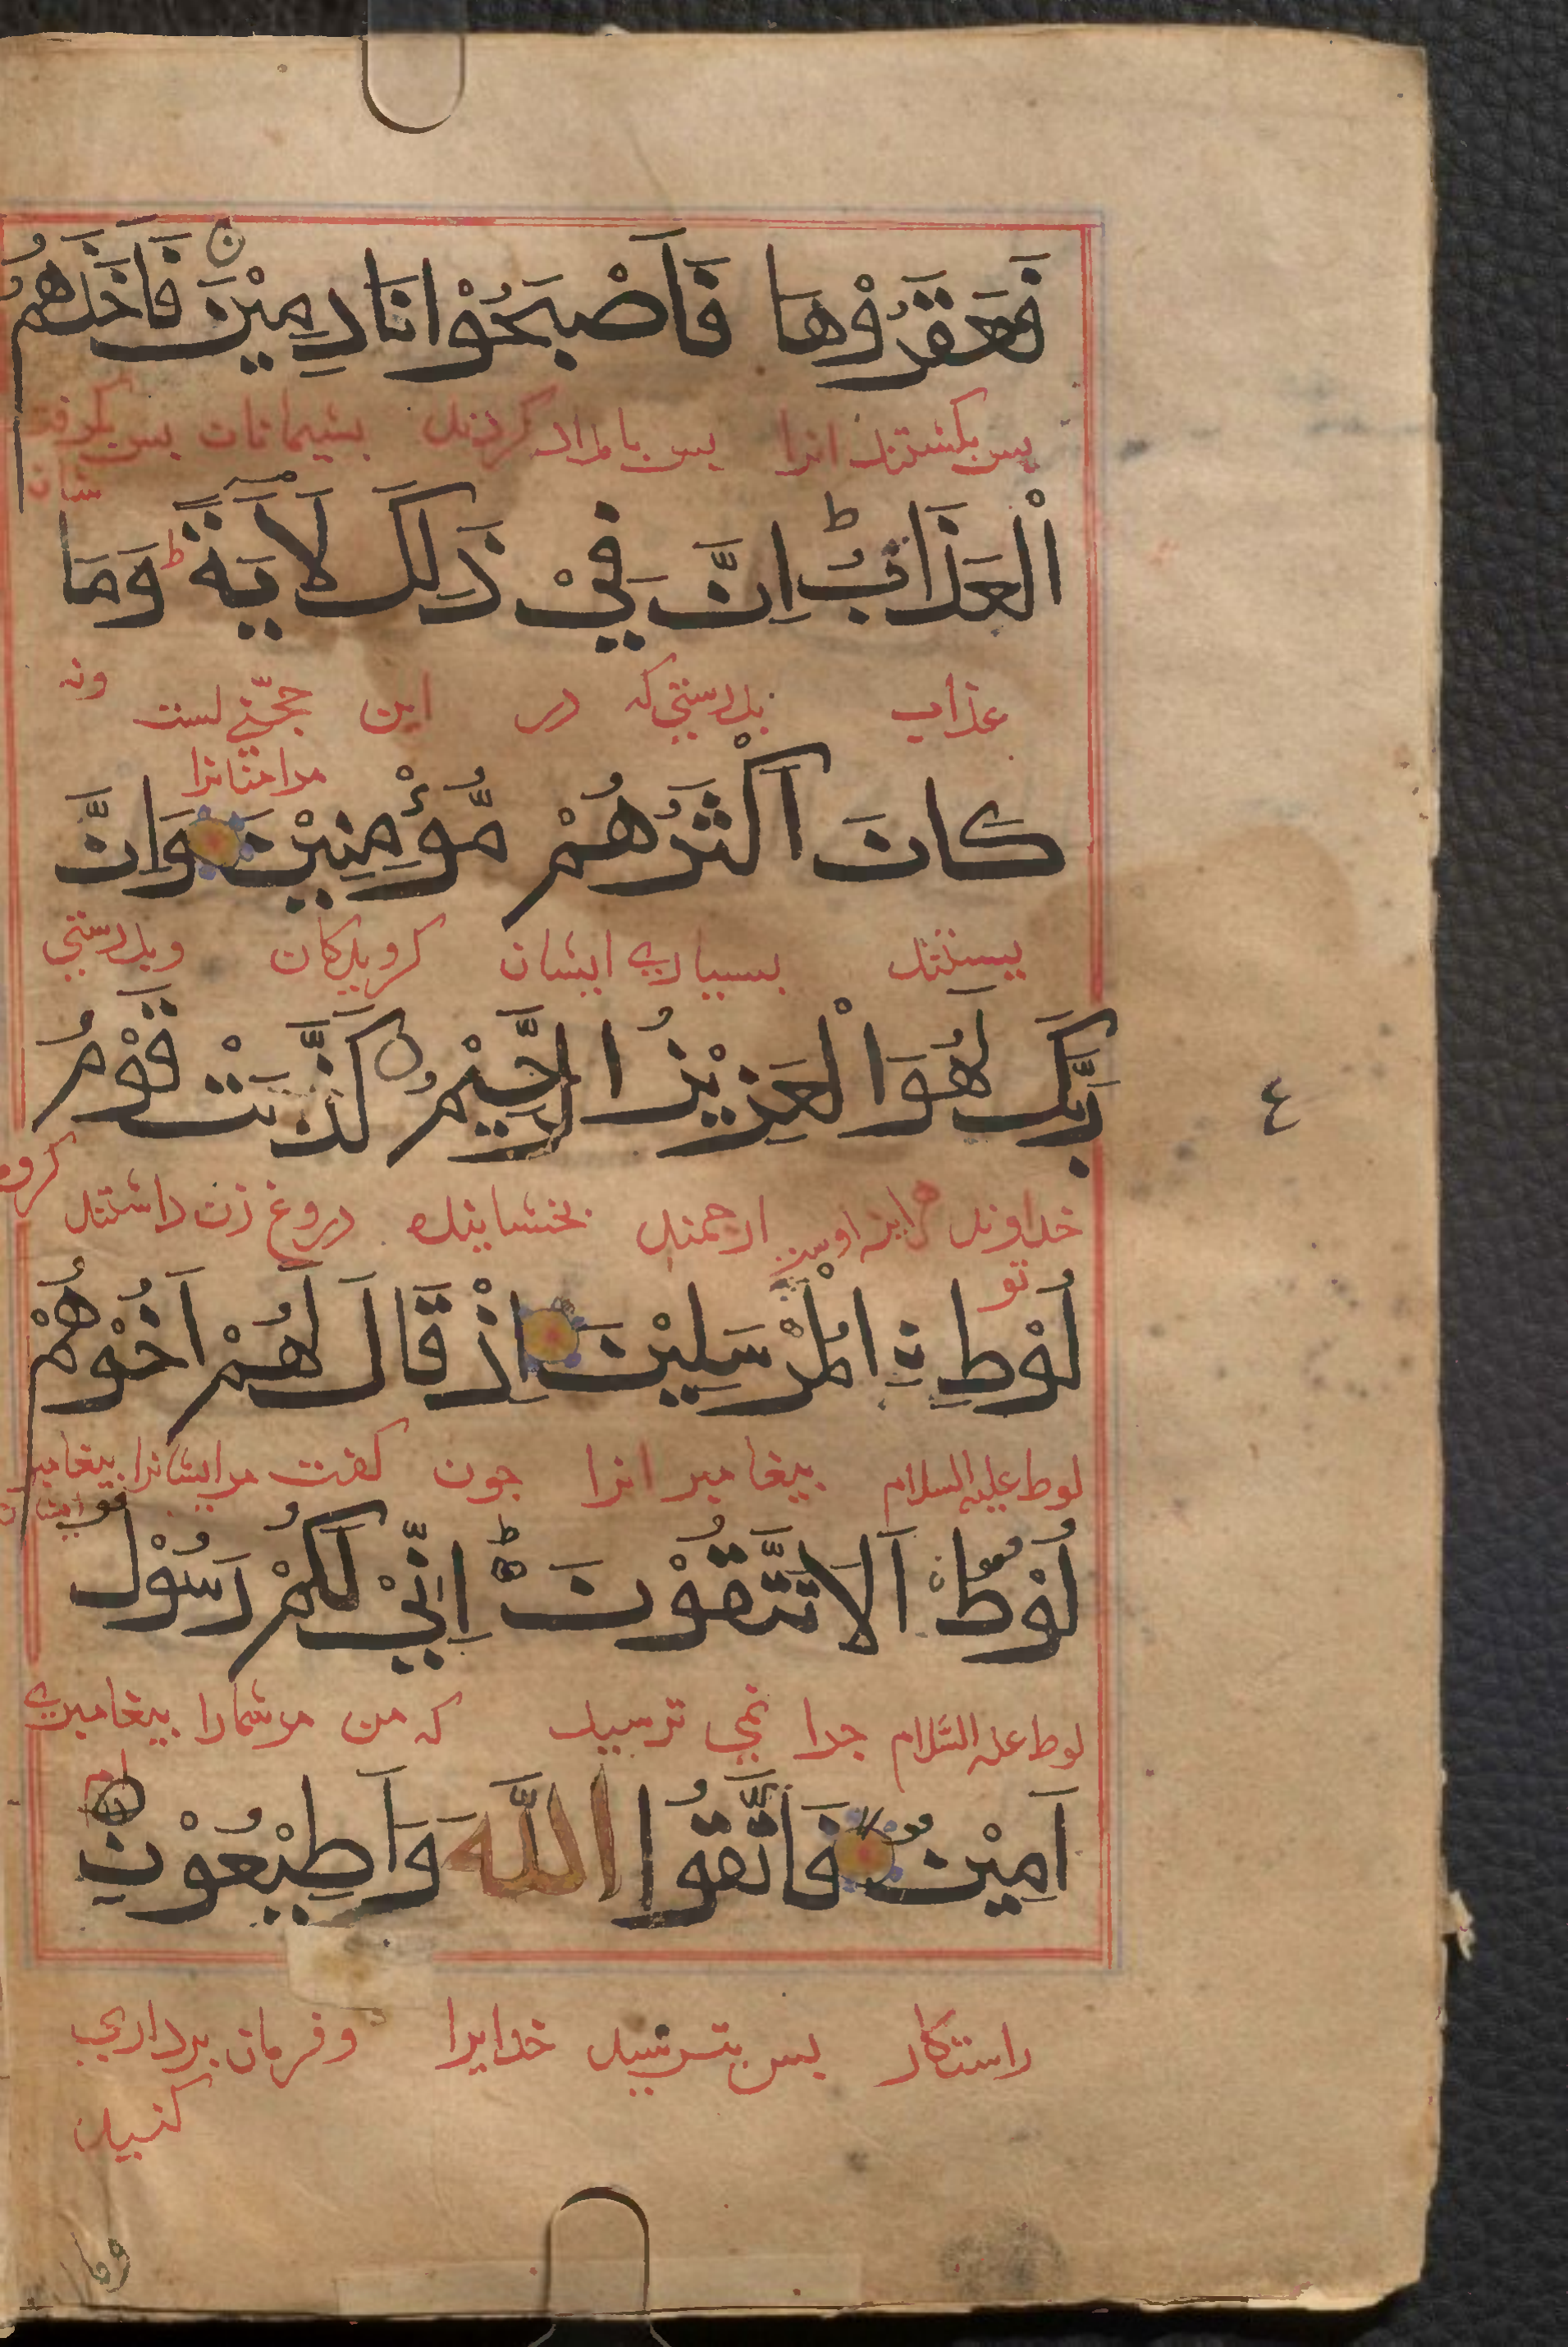 فَعَقَرُوْهَا فَاَصْبَحُوْا نَادِمِيْنَ فَاَخَذَهُمُ
پس بکشتند انرا پس بامداد کردند پشیمانان پس بگرفت
شان
الْعَذَابُ ط اِنَّ فِيْ ذَلِكَ لَاٰيَةً ط وَمَا
عذاب بدرستی که در این حجّتی است ونه
مرامتانرا
كَانَ اَكْثَرُهُمْ مُّؤْمِنِيْنَ وَاِنَّ
نیستند بسیاری ایشان کرویدکان وبدرستی
رَبَّكَ لَهُوَ الْعَزِيْزُ الرَّحِيْمُ كَذَّبَتْ قَوْمُ
خداوند هراینه اوست ارجمند بخشاینده دروغ زن داشتند کروه
تو
لُوْطِ نِ الْمُرْسَلِيْنَ اِذْ قَالَ لَهُمْ اَخُوْهُمْ
لوط علیه السلام بیغامبر انرا جون کفت مرایشانرا بیغامبر
ایشان
لُوْطٌ اَلَا تَتَّقُوْنَ اِنِّيْ لَكُمْ رَسُوْلٌ
لوط علیه السّلام جرا نمی ترسید که من مرشمارا بیغامبری
ام
اَمِيْنٌ فَاتَّقُوا اللّٰهَ وَاَطِيْعُوْنِ
راستکار بس بترسید خدایرا وفرمان برداری
کنید
وما
٤